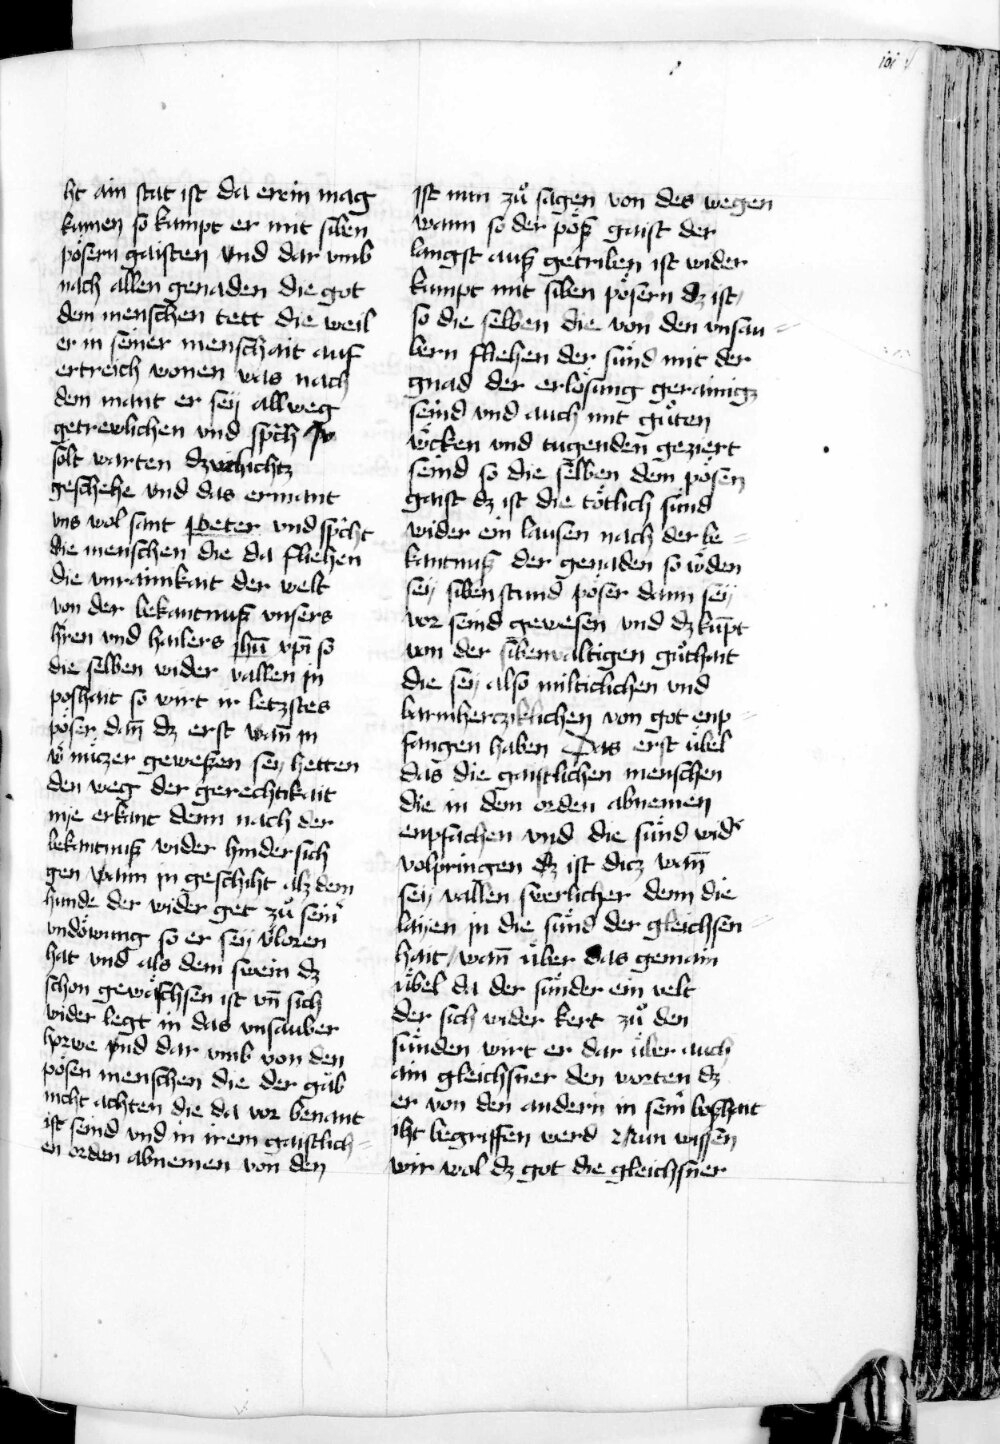 101
ht ain stat ist da er ein mag
kumen so kumpt er mit siben
pösern gaisten vnd dar vmb
nach allen genaden die got
dem menschen tett die weil
er in seiner menschait auf
ertreich wonen was nach
dem mant er seӱ allweg
getrewlichen vnd spch
solt warten dz nichtz
geschehe vnd das ermant
vns wol sant Peter vnd spcht
die menschen die da fliehen
die vnrainikait der welt
von der bekantnuß vnsers
hren vnd hailers jhū xpī so
die selben wider vallen in
poshait so wirt ir letzstes
pöser dañ dz erst wañ in
nüczer geweßen seӱ hetten
den weg der gerechtikait
nie erkant denn nach der
bekantnuß wider hinder sich
gen wann in geschiht alz dem
hunde der wider get zů seinr
vndöwung so er seӱ vloren
hat vnd als dem swein dz
schon gewäschsen ist vñ sich
wider legt in das vnsauber
horwe vnd dar vmb von den
pösen menschen die der gäb
nicht achten die da vor benant
ist seind vnd in irem gaistlich=
en orden abnemen von den
ist nun zů sagen von des wegen
wann so der pöß gaist der
langst auß getriben ist wider
kumpt mit siben pösern dz ist/
so die selben die von den vnsau=
bern fliehen der sünd mit der
gnad der erlösung gerainigz
seind vnd auch mit gůten
wöcken vnd tugenden geziert
seind so die selben dem pösen
gaist dz ist die tötlich sünd
wider ein lausen nach der be=
kantnuß der genaden so wöden
seӱ siben stund pöser dann seӱ
vor seind gewesen vnd dz kupt
von der sibenualtigen gůthait
die seӱ also milticlichen vnd
barmherczikl­ichen von got enp=
fangen haben Das erst übel
das die gaistlichen menschen
die in dem orden abnemen
enpfächen vnd die sünd wid
volpringen dz ist dicz wañ
seӱ vallen swerlicher denn die
laӱen in die sünd der gleichsen=
hait/ wañ über das gemain
übel da der sünder ein velt
der sich wider kert zů den
sünden wirt er dar über auch
ain gleichsner den worten dz
er von den andern in seinr boßhait
iht begriffen werd Nun wissen
wir wol dz got die gleichsner